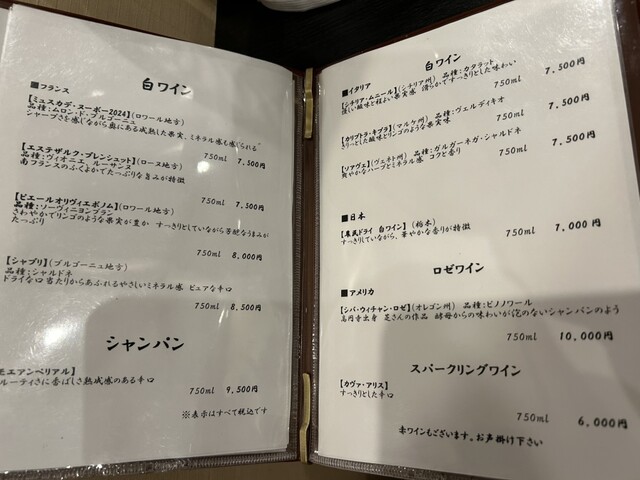 白ワイン
■フランス
【ミュスカデ・ヌーボー2024】(ロワール地方)
品種:ムロン・ド・ブルゴーニュ
シャープさを感じながら奥にある成熟した果実、ミネラル感も感じられる
750ml 7,500円
【エステザルク・プレンシュット】(ローヌ地方)
品種:ヴィオニエ、ルーサンヌ
南フランスのふくよかでたっぷりな旨みが特徴
750ml 7,500円
【ピエールオリヴィエボノム】(ロワール地方)
品種:ソーヴィニヨンブラン
さわやかでリンゴのような果実が豊か すっきりしていながら芳醇なうまみが
たっぷり
750ml 8,000円
【シャブリ】(ブルゴーニュ地方)
品種:シャルドネ
ドライな口当たりからあふれるやさしいミネラル感 ピュアな辛口
750ml 8,500円
シャンパン
モエアンペリアル】
ルーティさに香ばしさ熟成感のある辛口
750ml 9,500円
※表示はすべて税込です
白ワイン
■イタリア
【シチリア・ムニール】(シチリア州) 品種:カタラット
優しい酸味と程よい果実感 滑らかですっきりとした味わい
750ml 7,500円
【カリプトラ・キプラ】(マルケ州) 品種:ヴェルディキオ
きりっとした酸味とリンゴのような果実味
750ml 7,500円
【ソアヴェ】(ヴェネト州) 品種:ガルガーネガ・シャルドネ
爽やかなハーブとミネラル感 コクと香り
750ml 7,500円
■日本
【農民ドライ 白ワイン】 (栃木)
すっきりしていながら、華やかな香りが特徴
750ml 7,000円
ロゼワイン
■アメリカ
【シバ・ウィチャン・ロゼ】(オレゴン州) 品種:ピノノワール
高円寺出身 芝さんの作品 酵母からの味わいが泡のないシャンパンのよう
750ml 10,000円
スパークリングワイン
【カヴァ・アリス】
すっきりとした辛口
750ml 6,000円
赤ワインもございます。お声掛け下さい